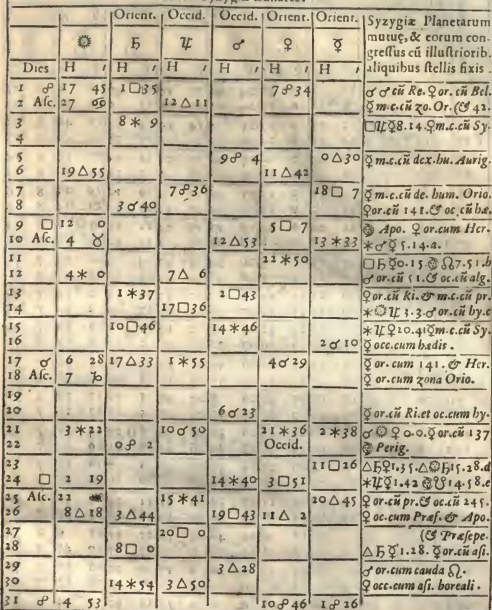 Orient. Occid. Occid. Orient. Orient.
☼ ♄ ♃ ♂ ♀ ☿ Syzygiæ Planetarum mutuę, & eorum congressus cū illustriorib. aliquibus stellis fixis.
Dies H H ′ H ′ H ′ H ′ H ′
1 ☍ 17 45 1□35 7☍34 ♂ ♂ cū Re. ♀ or. cū Bel.
2 Asc. 27 ♋ 12△11 ☿ m.c. cū zo. Or. (& 42.
3 8✶9 □♃☿8.14.♀m.c.cū Sy.
4
5 9☍4 0△30 ☿ m.c. cū dex. hu. Aurig.
6 19△55 11△42
7 7☍36 18□7 ☿ m.c. cū de. hum. Orio.
8 3☌40 ♀or. cū 141. & oc. cū hæ.
9 □ 12 0 5□7 Apo. ♀ or. cum Her.
10 Asc. 4 ♉ 12△53 13✶33 ✶♂☿5.14.a.
11 22✶50 □♄☿0.15. ☊7.51.b
12 4✶0 7△6 ♂ or. cū 51. & oc. cū alg.
13 1✶37 2□43 ♀or. cū Ri. & m.c. cū pr.
14 17□36 ✶☼♃3.3.♂ or. cū hy.c
15 10□46 14✶46 ✶♃♀20.4 ☿m.c. cū Sy.
16 2☌10 ☿ occ. cum hædis.
17 ☌ 6 28 17△33 1✶55 4☌29 ♀ or. cum 141. & Her.
18 Asc. 7 ♑ ☿ or. cum zona Orio.
19
20 6☌23 ☿ or. cū Ri. et oc. cum hy.
21 3✶22 10☌50 21✶36 2✶38 ☌☼♀0.0.☿ or. cū 137
22 0☍2 Occid. Perig.
23 11□26 △♄♀1.35.△☼♄15.28.d
24 □ 2 19 14✶40 3□51 ✶♃☿1.42 ☋14.58.e
25 Asc. 22 ♒ 15✶41 20△45 ♀ or. cū pr. & oc. cū 245.
26 8△18 3△44 19□43 11△2 ♀ oc. cum Præs. & Apo.
27 20□0 (& Præsepe.
28 8□0 △♄☿1.28. ☿ or. cū asi.
29 3△28 ♂ or. cum cauda ♌.
30 14✶54 3△50 ♀ occ. cum asi. boreali.
31 ☍ 4 53 10☍46 1☍26